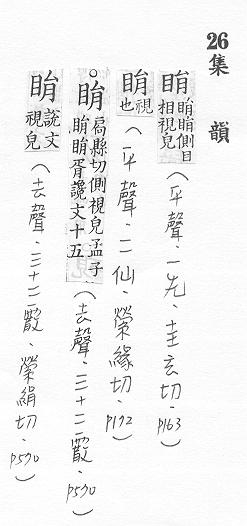 26集 韻
睊 睊睊側目相視皃（平聲．一先．圭玄切．P163）
睊 視也（平聲．二仙．縈緣切．P172）
○睊 扃縣切側視皃孟子睊睊胥讒文十五（去聲．三十二霰．P570）
睊 說文視皃（去聲．三十二霰．縈絹切．P570）